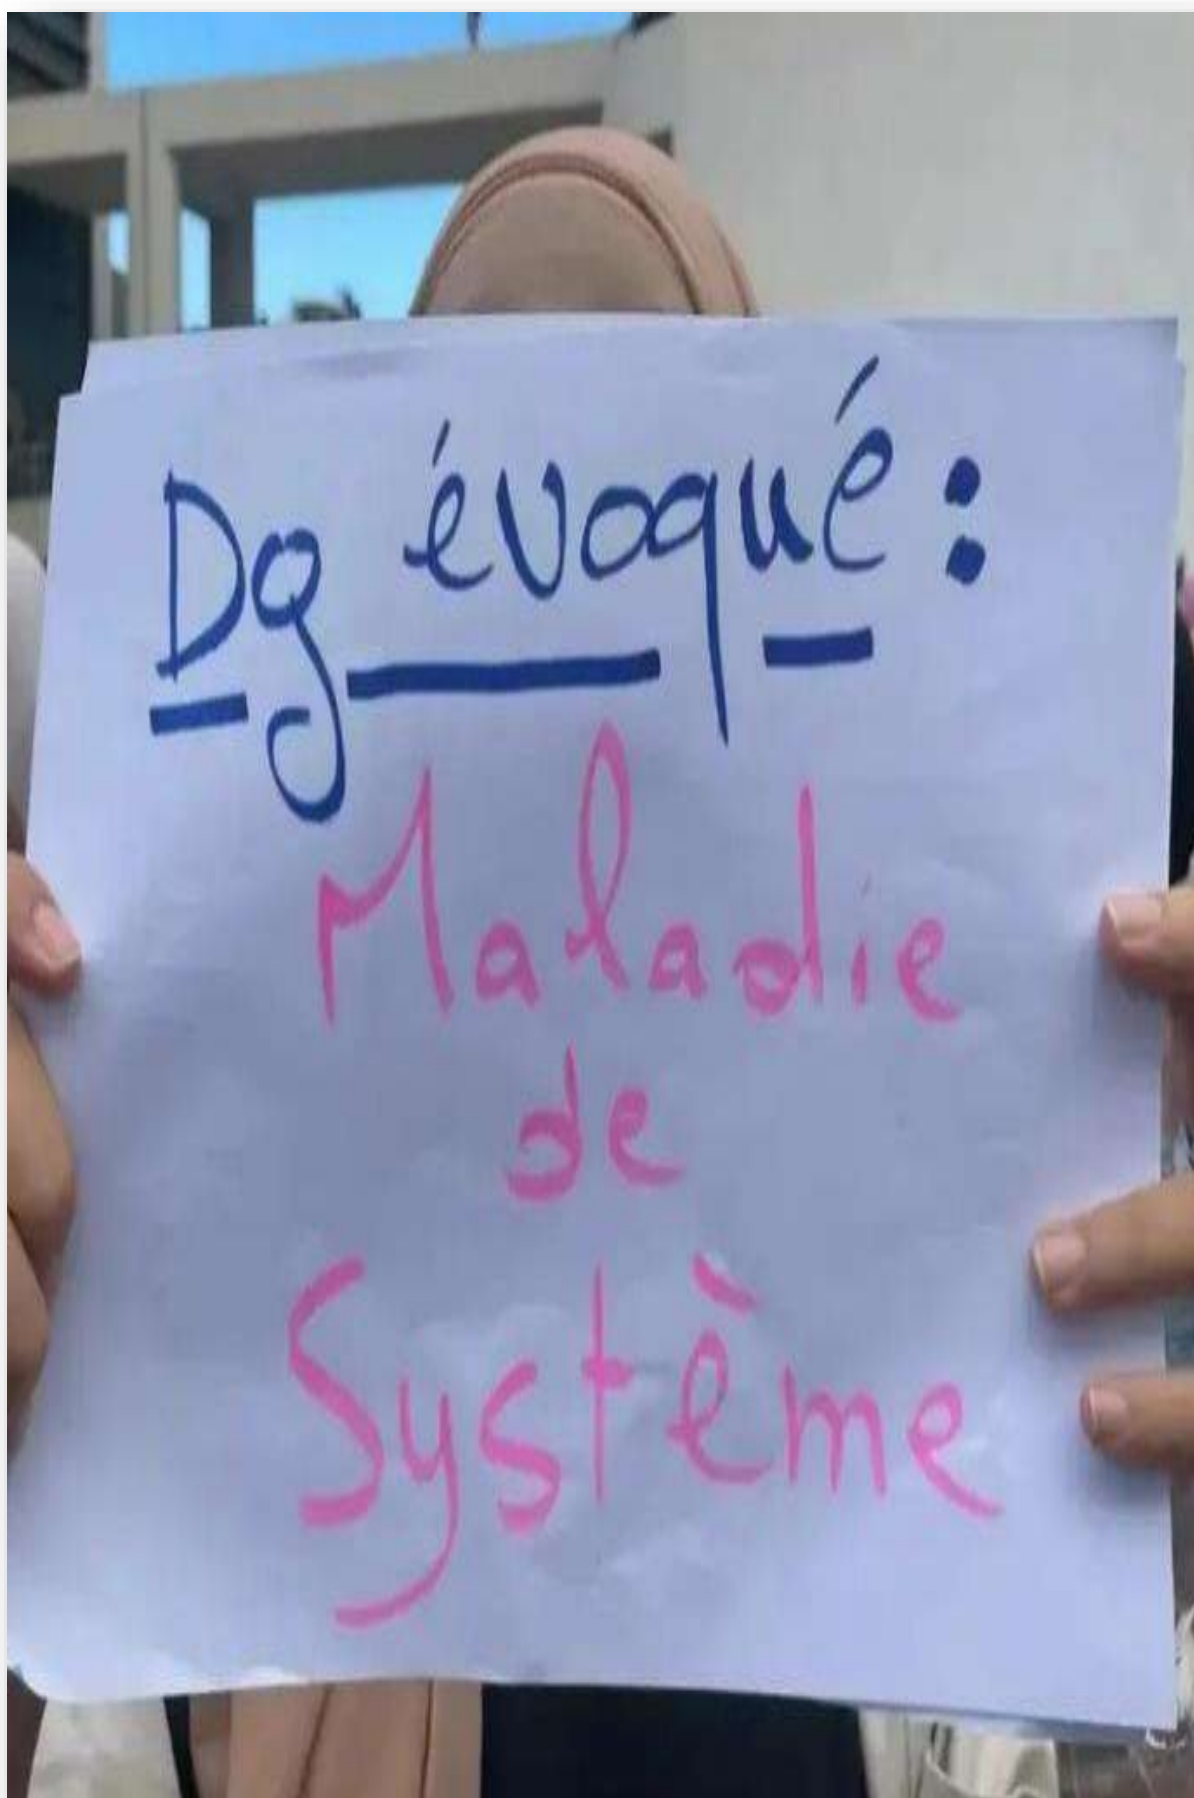 Dg évoqué :
Maladie
de
Système